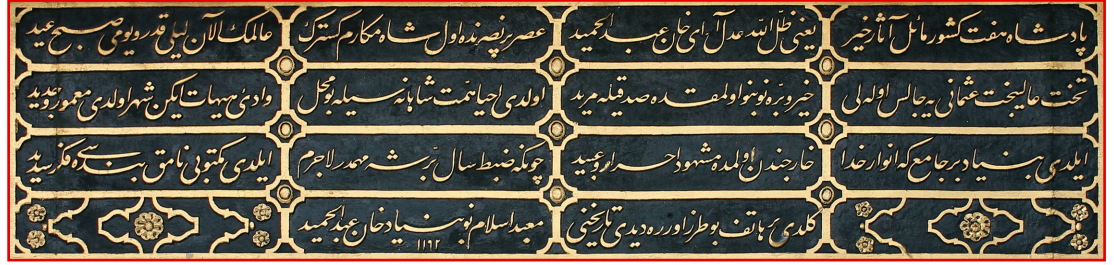 پادشاه هفت کشور مائل آثار خیر یعنی ظل الله عدل آرای خان عبد الحمید عصر پر نصرنده اول شاه مکارم کسترك عالمك الآن لیلی قدر و یومی صبح عید
تخت عالیبخت عثمانی یه جالس اوله لی خیر و بره نو بنو اولمقده صدقیله مرید اولدی احیا همت شاهانه سیله بو محل وادئ هیهات ایکن شهر اولدی معمور و جدید
ایلدی بنیاد بر جامع که انوار خدا خارجندن اولمده مشهود احرار و عبید چونکه ضبط سال بر شه مهمدر لاجرم ایلدی مکتوبی نامق بنده سی ده فکر سدید
کلدی بر هاتف بو طرز اوزره دیدی تاریخنی معبد اسلام نو بنیاد خان عبد الحمید
۱۱۹۲